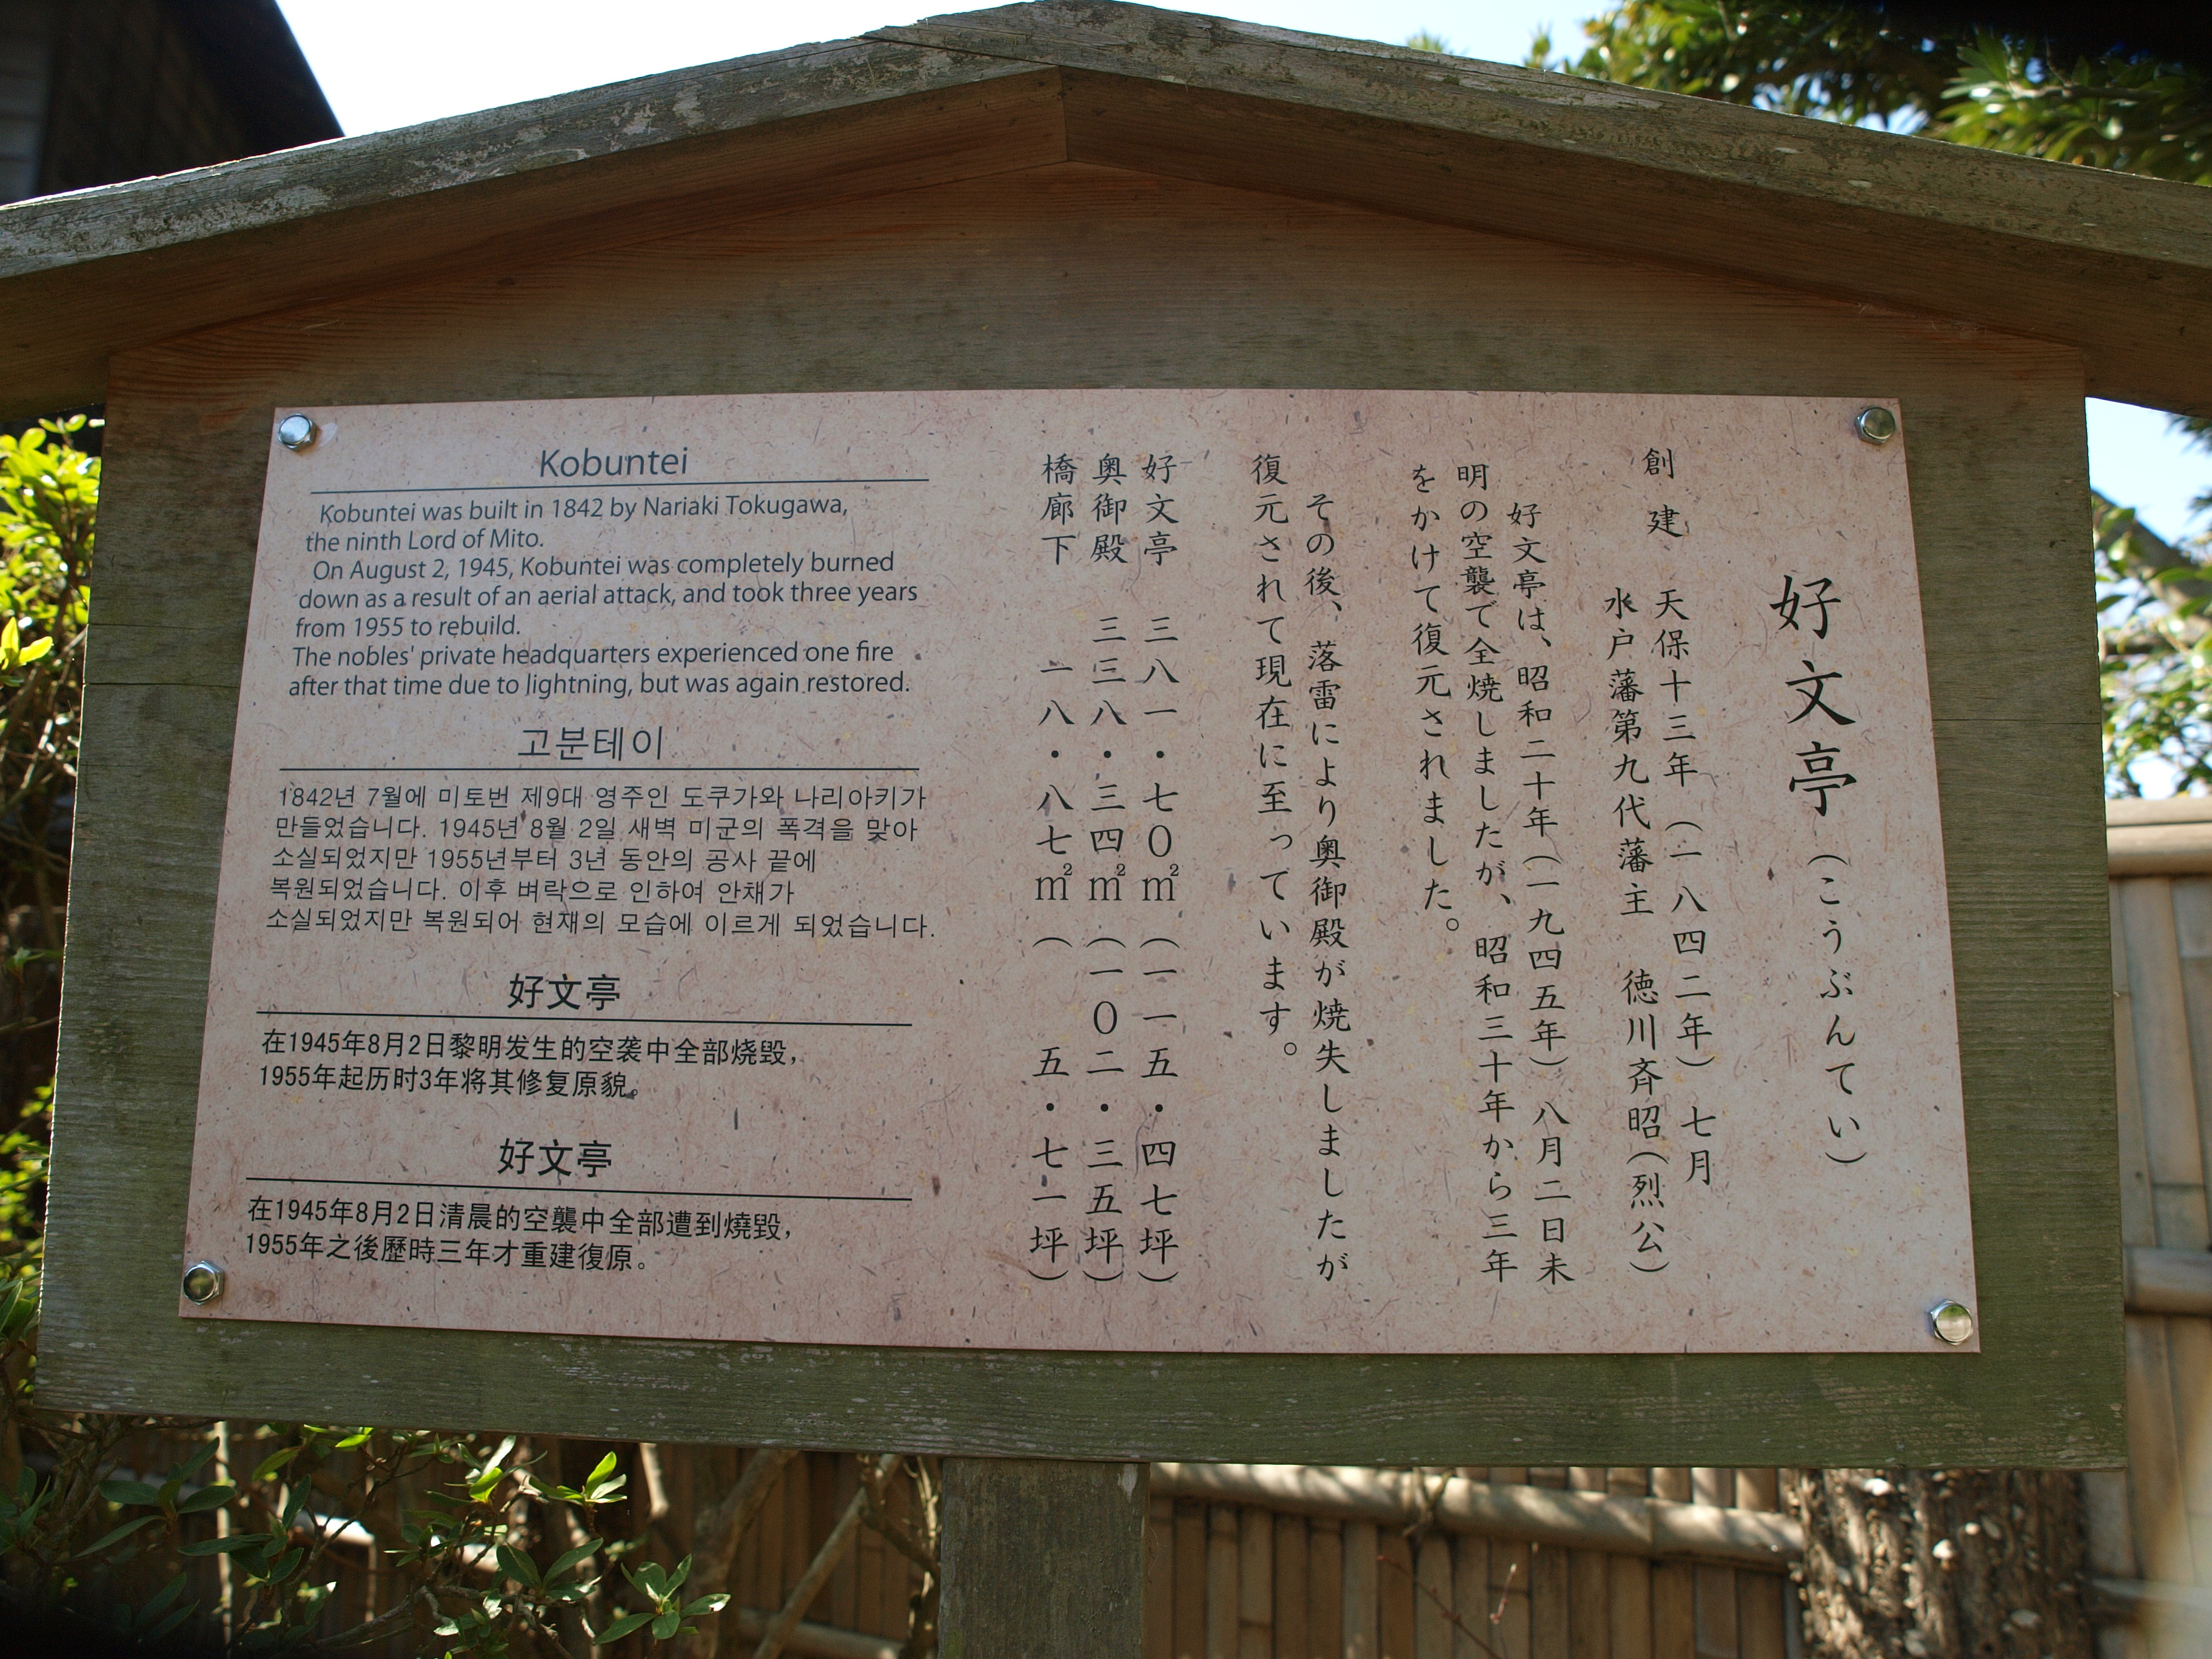 好文亭(こうぶんてい)
創建 天保十三年(一八四二年)七月
水戸藩第九代藩主 徳川斉昭(烈公)
好文亭は、昭和二十年(一九四五年)八月二日未
明の空襲で全焼しましたが、昭和三十年から三年
をかけて復元されました。
その後、落雷により奥御殿が焼失しましたが
復元されて現在に至っています。
好文亭 三八一・七〇㎡(一一五・四七坪)
奥御殿 三三八・三四㎡(一〇二・三五坪)
橋廊下 一八・八七㎡(五・七一坪)
Kobuntei
Kobuntei was built in 1842 by Nariaki Tokugawa,
the ninth Lord of Mito.
On August 2, 1945, Kobuntei was completely burned
down as a result of an aerial attack, and took three years
from 1955 to rebuild.
The nobles' private headquarters experienced one fire
after that time due to lightning, but was again restored.
고분테이
1842년 7월에 미토번 제9대 영주인 도쿠가와 나리아키가
만들었습니다. 1945년 8월 2일 새벽 미군의 폭격을 맞아
소실되었지만 1955년부터 3년 동안의 공사 끝에
복원되었습니다. 이후 벼락으로 인하여 안채가
소실되었지만 복원되어 현재의 모습에 이르게 되었습니다.
好文亭
在1945年8月2日黎明发生的空袭中全部烧毁，
1955年起历时3年将其修复原貌。
好文亭
在1945年8月2日清晨的空襲中全部遭到燒毀，
1955年之後歷時三年才重建復原。